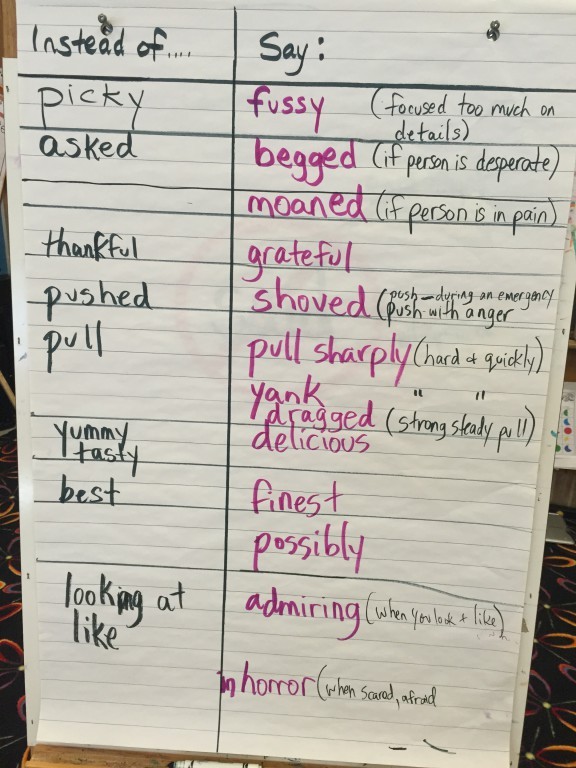 Instead of.... Say:
picky fussy (focused too much on
details)
asked begged (if person is desperate)
moaned (if person is in pain)
thankful grateful
pushed shoved (push - during an emergency
push with anger
pull pull sharply (hard & quickly)
yank " "
dragged (strong steady pull)
yummy delicious
tasty
best finest
possibly
looking at admiring (when you look + like)
like
in horror (when scared, afraid